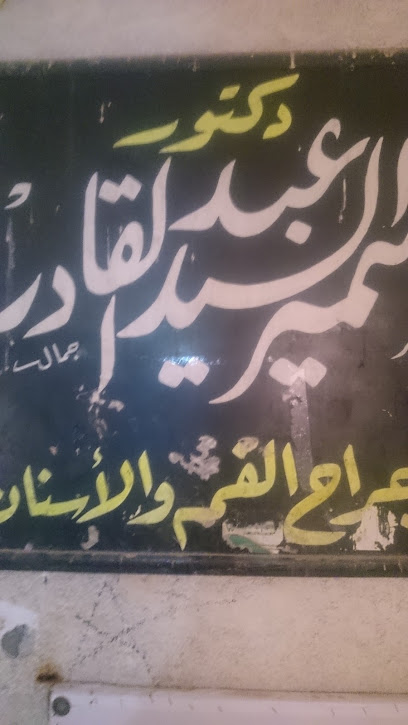 دكتور
السيد عبد القادر
جمال
جراح الفم والأسنان